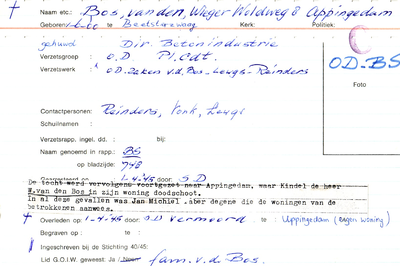 † Naam etc.: Bos, van den, Wieger Woldweg 8 Appingedam
Geboren: te Beetsterzwaag Kerk: Politiek:
gehuwd Dir. Betonindustrie
Verzetsgroep : O.D Pl. Cdt.
Verzetswerk : O.D. zaken v.d. Bos-Leugs-Reinders
O.D-BS
Foto
Contactpersonen: Reinders, Vonk, Leugs
Schuilnamen :
Verzetsrapp. ingel. dd. : bij:
Naam genoemd in rapp.: BS
op bladzijde: 748
Gearresteerd op 1-4-'45 door: S.D
De tocht werd vervolgens voortgezet naar Appingedam, waar Kindel de heer
W.van den Bos in zijn woning doodschoot.
In al deze gevallen was Jan Michiel .aber degene die de woningen van de
betrokkenen aanwees.
† Overleden op : 1-4-'45 door: S.D vermoord te : Appingedam (eigen woning)
Begraven op : te :
Ingeschreven bij de Stichting 40/45:
Lid G.O.I.W. geweest: Ja / Neen fam. v.d. Bos.